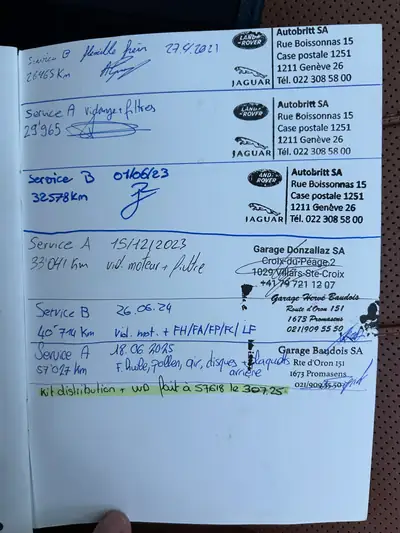 Service B flexible frein 27.4.2021
26465 Km
LAND-ROVER
JAGUAR
Autobritt SA
Rue Boissonnas 15
Case postale 1251
1211 Genève 26
Tél. 022 308 58 00
Service A vidange + filtres
29'965
LAND-ROVER
JAGUAR
Autobritt SA
Rue Boissonnas 15
Case postale 1251
1211 Genève 26
Tél. 022 308 58 00
Service B 01/06/23
32578 Km
LAND-ROVER
JAGUAR
Autobritt SA
Rue Boissonnas 15
Case postale 1251
1211 Genève 26
Tél. 022 308 58 00
Service A 15/12/2023
33'041 km vid. moteur + filtre
Garage Donzallaz SA
Croix-du-Péage 2
1029 Villars-Ste-Croix
+41 79 721 12 07
Service B 26.06.24
40'714 Km vid. mot. + FH/FA/FP/FC/LF
Garage Hervé Baudois
Route d'Oron 151
1673 Promasens
021/909 55 50
Service A 18 06 2025
57'027 Km F. huile, pollen, air, disques + plaquettes
arrière
Garage Baudois SA
Rte d'Oron 151
1673 Promasens
021/909 55 50
Kit distribution + WD fait à 57618 le 30.7.25